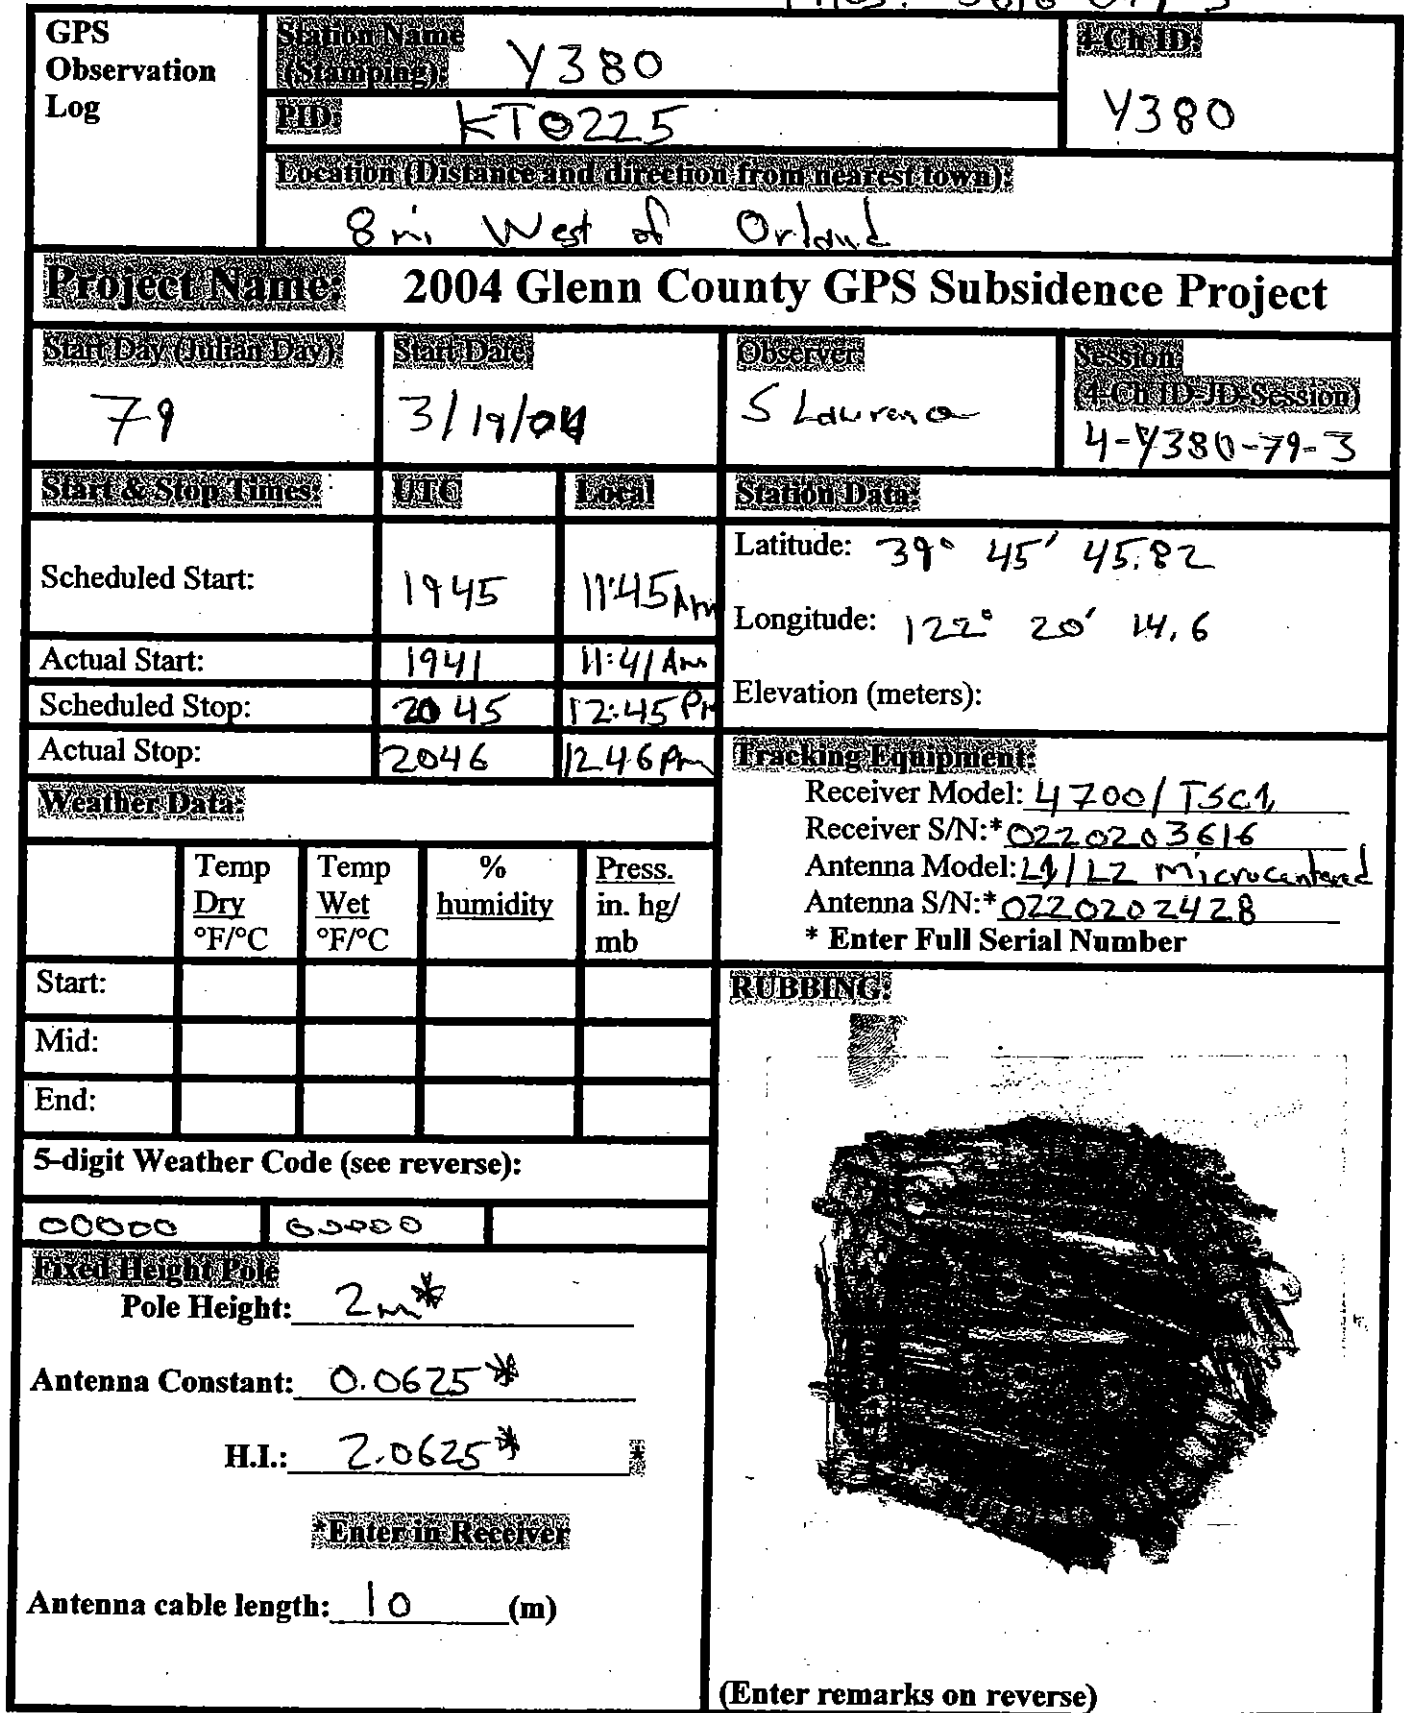 GPS
Observation
Log
Station Name
(Stamping): Y380
4-Ch ID:
Y380
PID: KT0225
Location (Distance and direction from nearest town):
8 mi West of Orland
Project Name: 2004 Glenn County GPS Subsidence Project
Start Day (Julian Day)
79
Start Date:
3/19/04
Observer:
S Lawrence
Session:
(4-Ch ID-JD-Session)
4-Y380-79-3
Start & Stop Times: UTC Local
Scheduled Start: 1945 11:45 Am
Actual Start: 1941 11:41 Am
Scheduled Stop: 2045 12:45 PM
Actual Stop: 2046 12 46 Pm
Station Data:
Latitude: 39° 45' 45.82
Longitude: 122° 20' 14.6
Elevation (meters):
Tracking Equipment:
Receiver Model: 4700/TSC1
Receiver S/N:* 0220203616
Antenna Model: L1/L2 Microcentered
Antenna S/N:* 0220202428
* Enter Full Serial Number
Weather Data:
Temp Dry °F/°C
Temp Wet °F/°C
% humidity
Press. in. hg/ mb
Start:
Mid:
End:
5-digit Weather Code (see reverse):
00000 00000
Fixed Height Pole
Pole Height: 2m*
Antenna Constant: 0.0625*
H.I.: 2.0625* *
*Enter in Receiver
Antenna cable length: 10 (m)
RUBBING:
(Enter remarks on reverse)